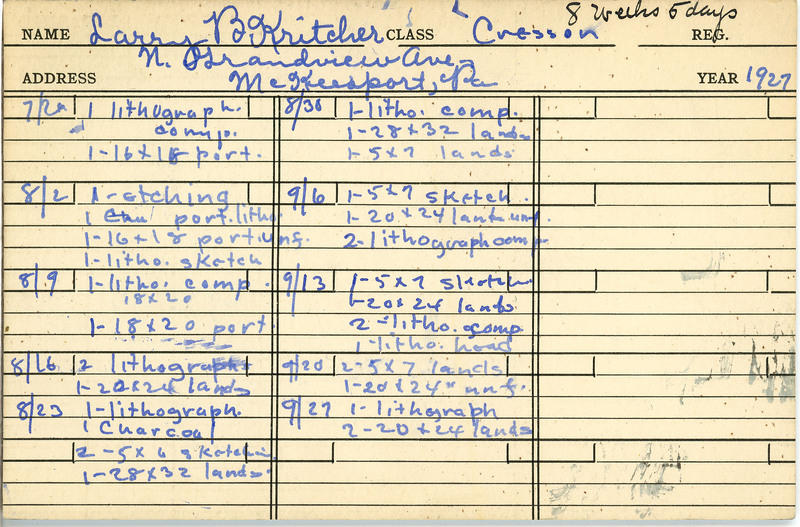 8 weeks 5 days
NAME Larry B. Kritcher CLASS Cresson REG.
N. Grandview Ave.
ADDRESS McKeesport, Pa YEAR 1927
7/26 1 lithograph.
comp.
1-16x18 port.
8/2 1-etching
1 port. litho
1-16x18 port. unf.
1-litho. sketch
8/9 1-litho. comp.
18x20
1-18x20 port.
8/16 2 lithographs
1-20x24 lands
8/23 1-lithograph.
1 Charcoal
2-5x6 sketches
1-28x32 lands.
8/30 1-litho. comp.
1-28x32 lands
1-5x7 lands
9/6 1-5x7 sketch.
1-20x24 lands. unf.
2-lithograph comp.
9/13 1-5x7 sketch.
1-20x24 lands
2-litho. comp
1-litho. head
9/20 2-5x7 lands
1-20x24" unf.
9/27 1-lithograph
2-20x24 lands